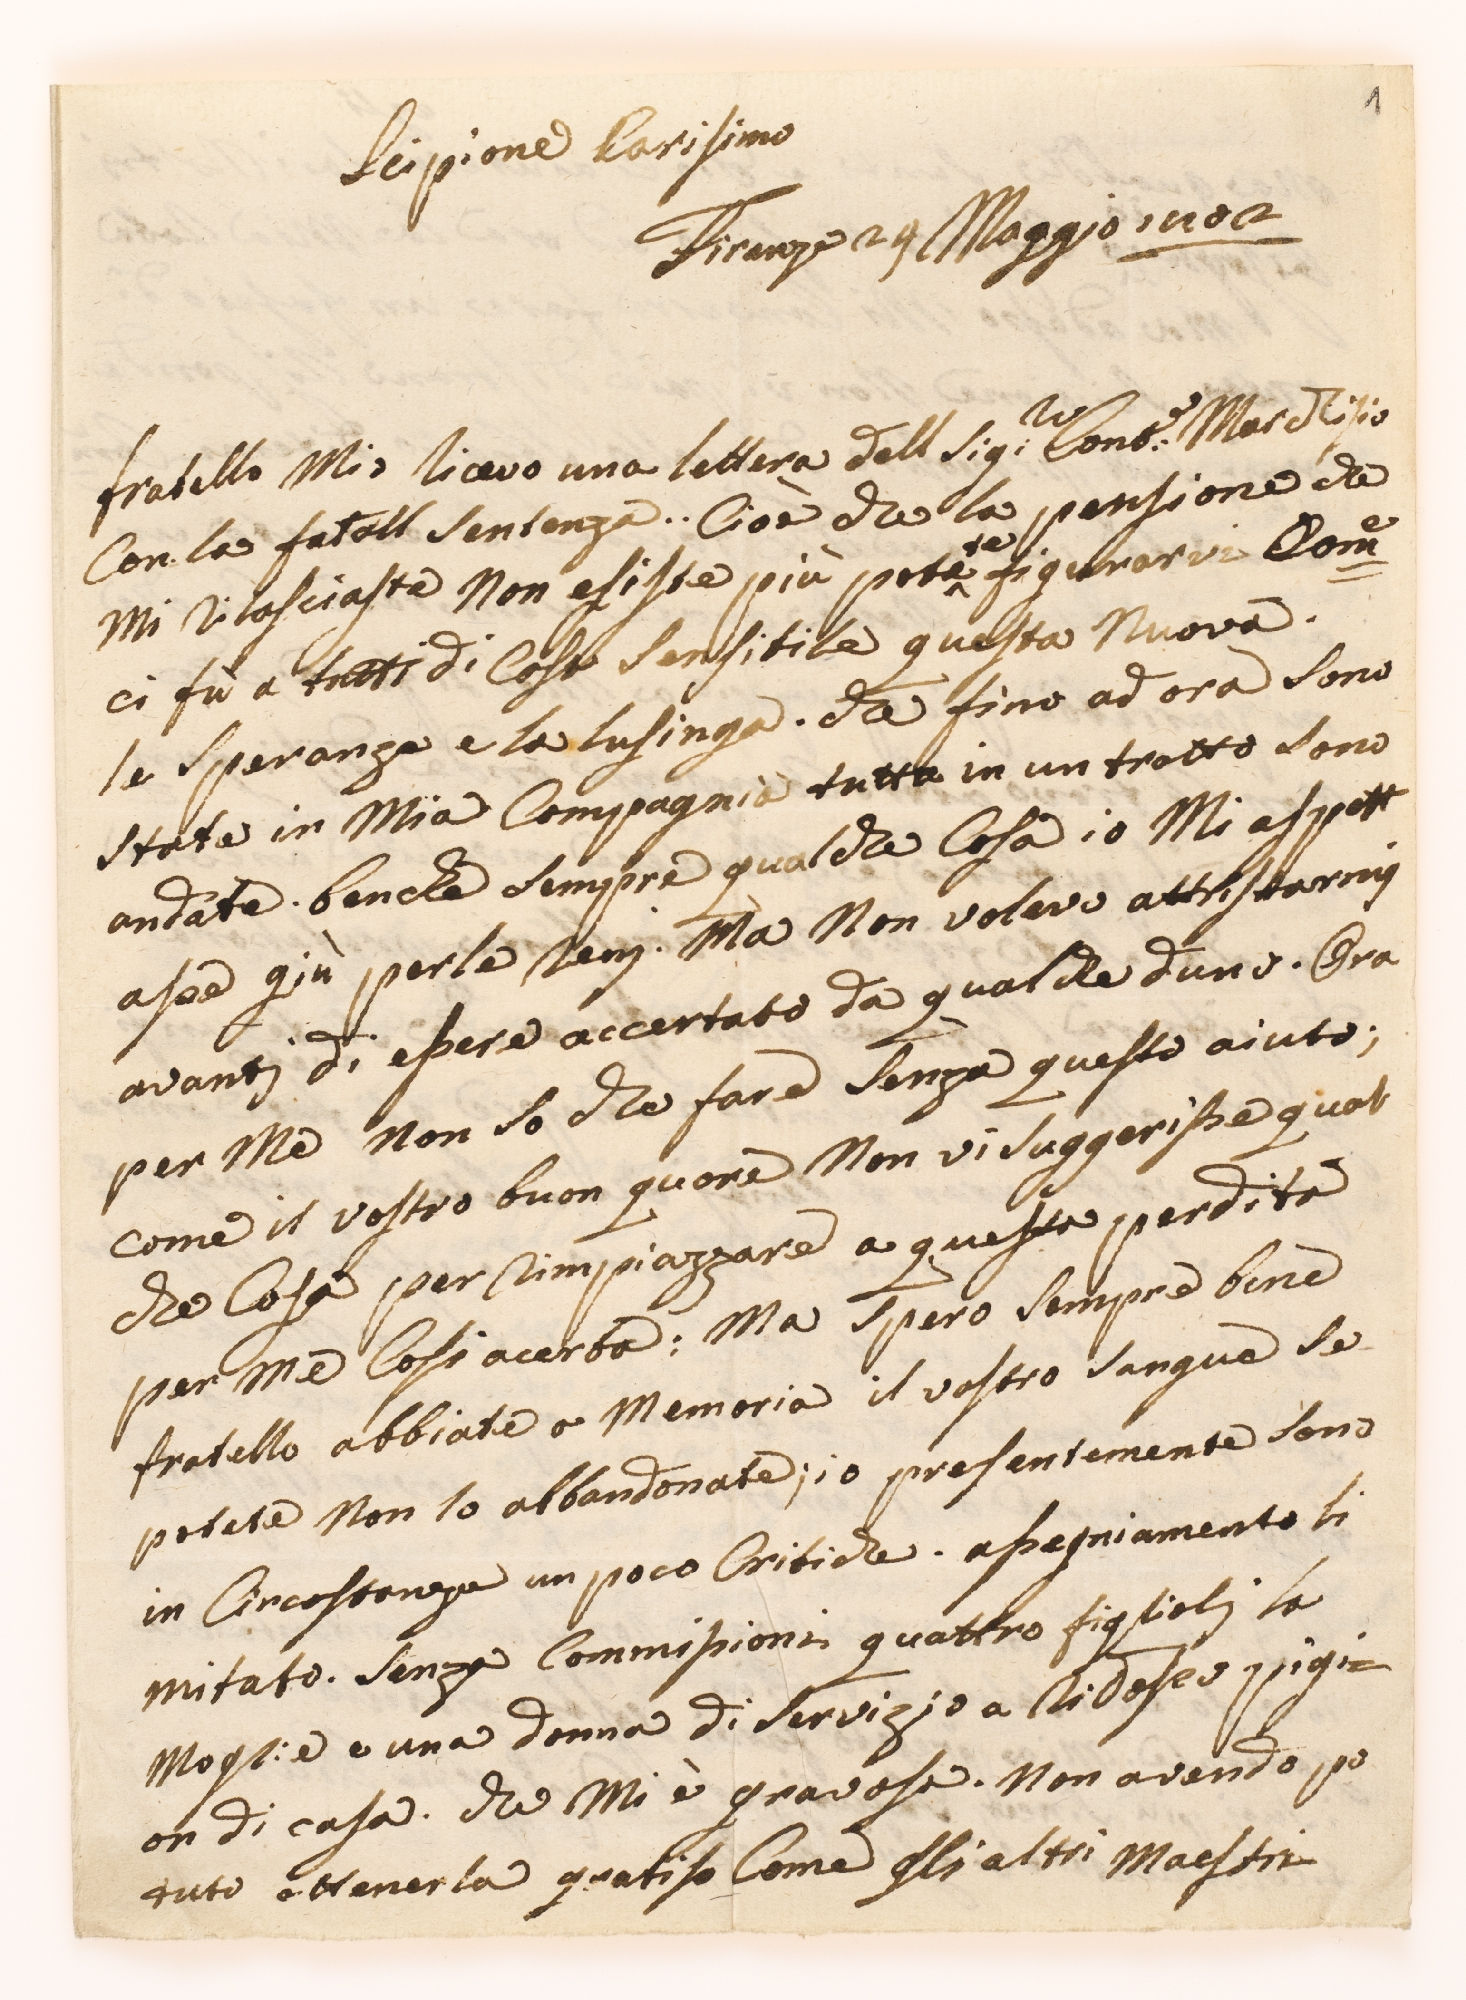 1
Scipione Carisimo
Firenze 24 Maggio 1802
fratello Mio ricevo una lettera dell Sig:
Con la fatall Sentenza.. Cioè che la pensione che
Mi rilasciaste Non esiste più potete figurarvi Come
ci fù a tutti di Cosa Sensibile questa Nuova.
le Speranze e la lusinga. che fino ad ora Sono
State in Mia Compagnia tutta in un tratto Sono
andate. benche Sempre qualche Cosa io Mi aspett
asse giù per le reni. Ma Non volevo attristarmi
avantj di essere accertato da qualche duno. Ora
per Me Non So che fare Senza questo aiuto;
come il vostro buon quore Non vi Suggerisse qual
che Cosa per rimpiazzare a questa perdita
per Me Cosi acerba: Ma Spero Sempre bene
fratello abbiate a Memoria il vostro Sangue Se
potete Non lo abbandonate; io presentemente Sono
in Circostanze un poco Critiche. assegniamento li
mitato. Senza Commissioni quattro figliolj la
Moglie e una donna di Servizio a ridosso pigi=
on di casa. che Mi è gravosa. Non avendo po
tuto ottenerla gratiso Come gli altri Maestri